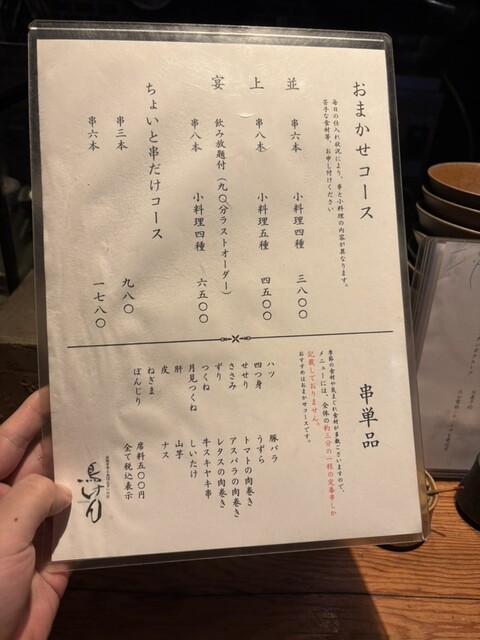 おまかせコース
毎日の仕入れ状況により、串と小料理の内容が異なります。
苦手な食材等、お申し付けください
並 串六本 小料理四種 三八〇〇
上 串八本 小料理五種 四五〇〇
宴 飲み放題付（九〇分ラストオーダー）
串八本 小料理四種 六五〇〇
ちょいと串だけコース
串三本 九八〇
串六本 一七八〇
串単品
季節の食材や気まぐれ食材が多数ございますので、
メニューには、全体の約三分の一程の定番串しか
記載しておりません。
おすすめはおまかせコースです。
ハツ
四つ身
せせり
ささみ
ずり
つくね
月見つくね
肝
皮
ねぎま
ぼんじり
豚バラ
うずら
トマトの肉巻き
アスパラの肉巻き
レタスの肉巻き
牛スキヤキ串
しいたけ
山芋
ナス
席料五〇〇円
全て税込表示